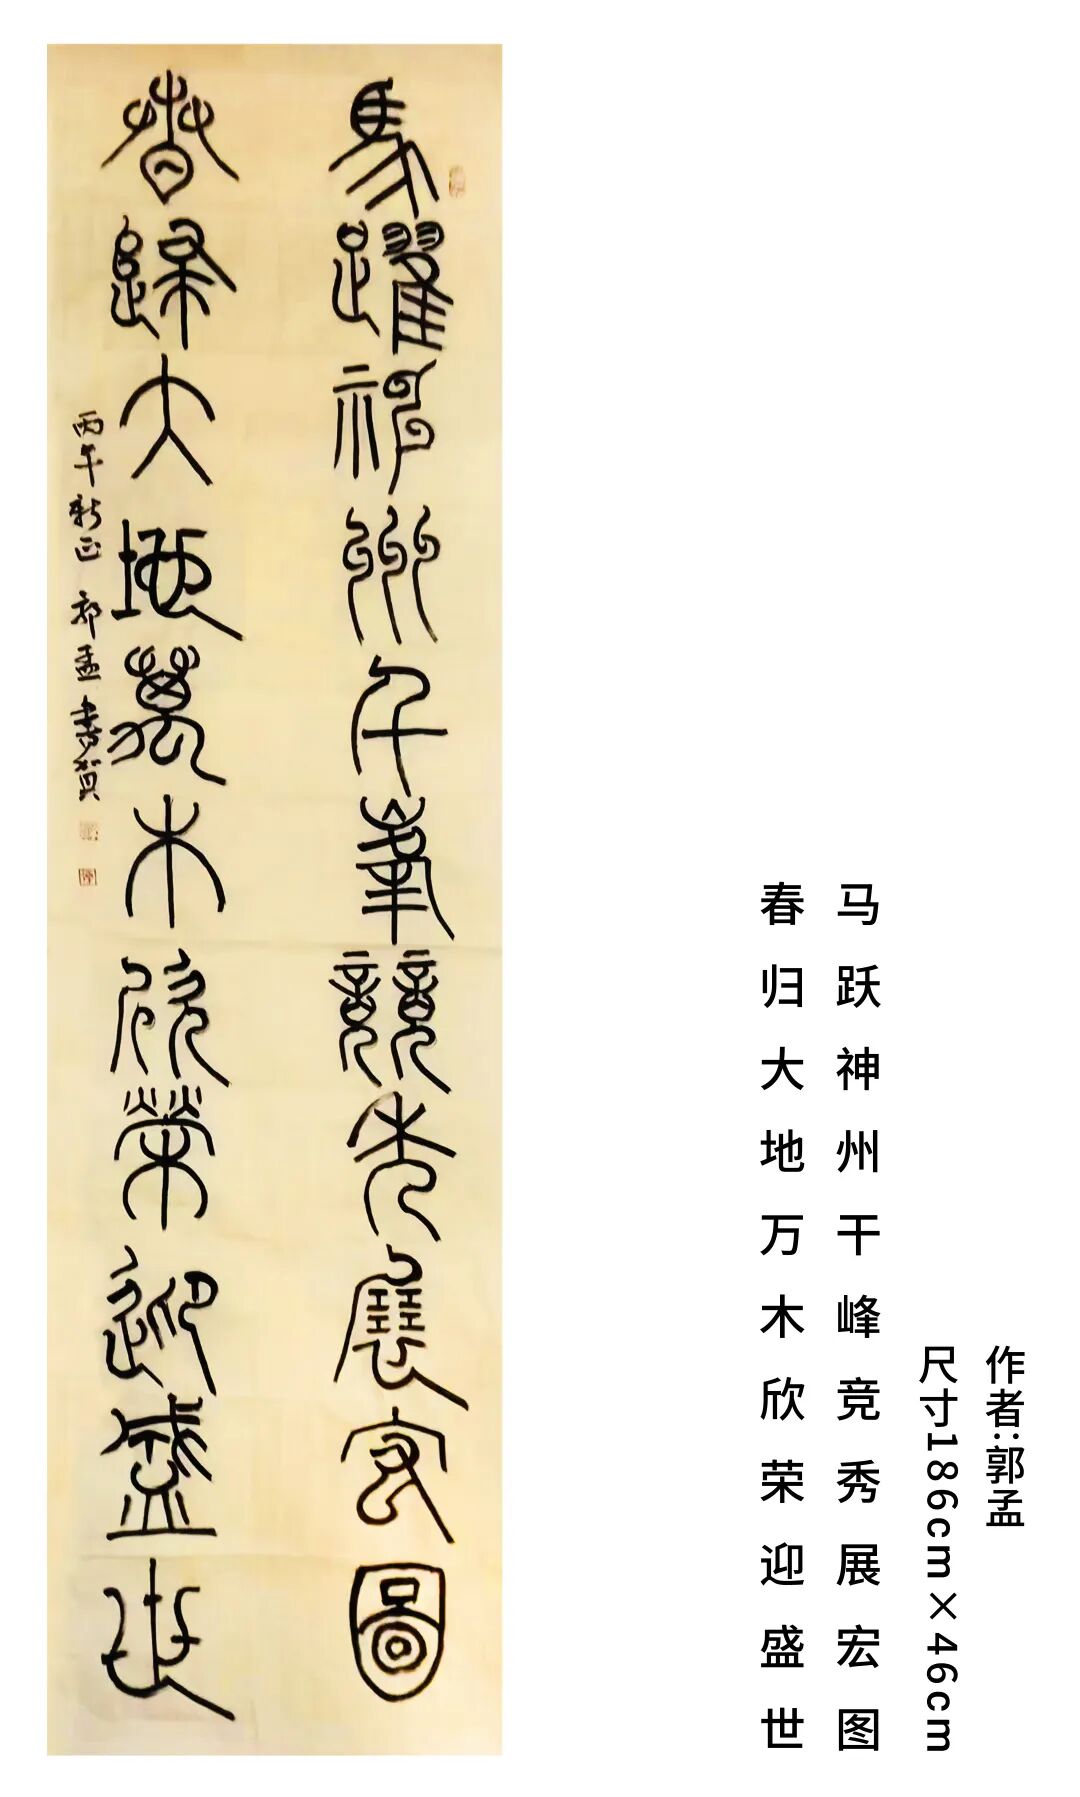 馬躍神州千峯競秀展宏圖
春歸大地萬木欣榮迎盛世
丙午新正 郭孟書賀
作者:郭孟
尺寸186cm×46cm
马跃神州干峰竞秀展宏图
春归大地万木欣荣迎盛世